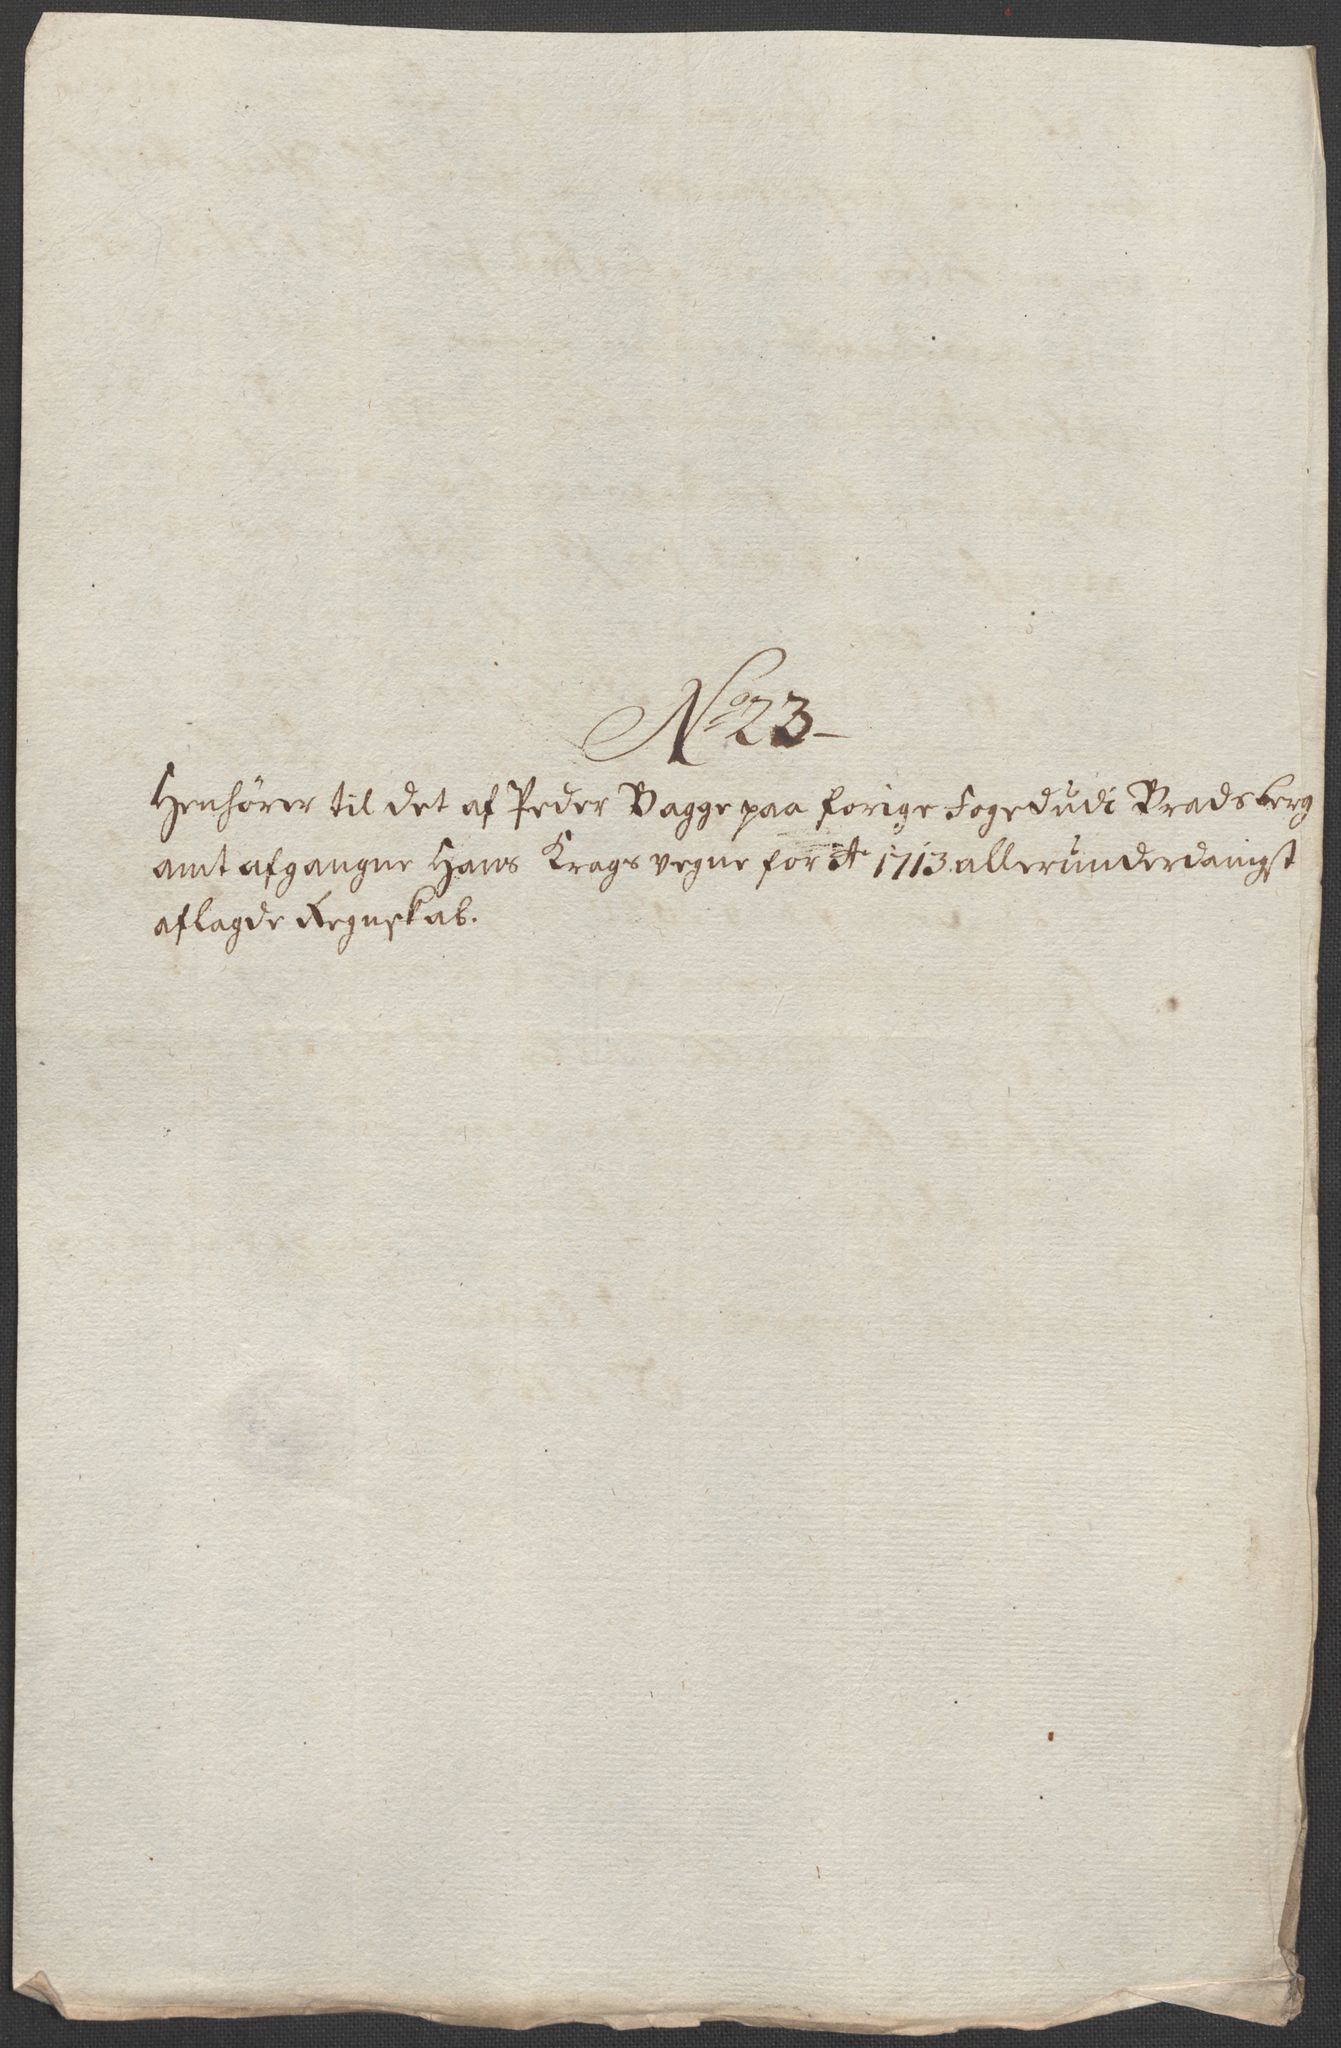 No 23
Henhörer til det af Peder Bagge paa forige Fogedud i Bradsberg
amt afgangne Hans Krags vegne for Ao 1713 allerunderdanigst
aflagde Regnskab.